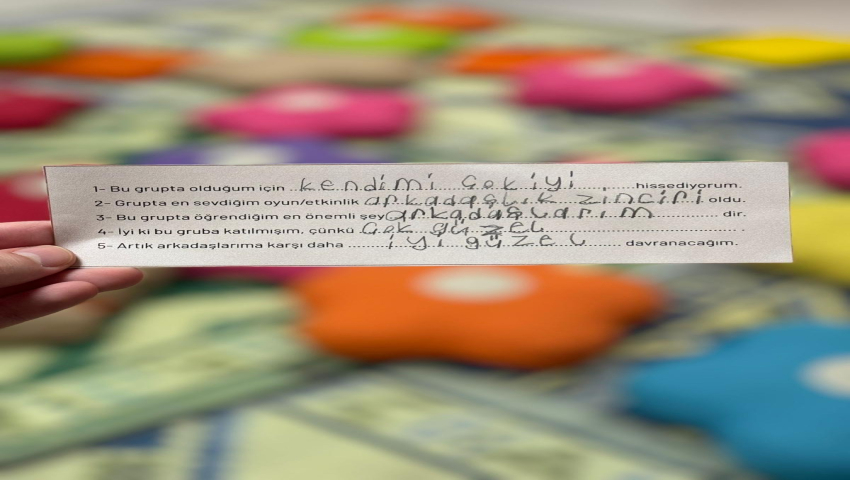 1- Bu grupta olduğum için ..kendimi çok iyi......,......hissediyorum.
2- Grupta en sevdiğim oyun/etkinlik arkadaşlık zinciri oldu.
3- Bu grupta öğrendiğim en önemli şey arkadaşlarım ........................ dir.
4- İyi ki bu gruba katılmışım, çünkü çok güzel ................................................ .
5- Artık arkadaşlarıma karşı daha .........iyi güzel........ davranacağım.